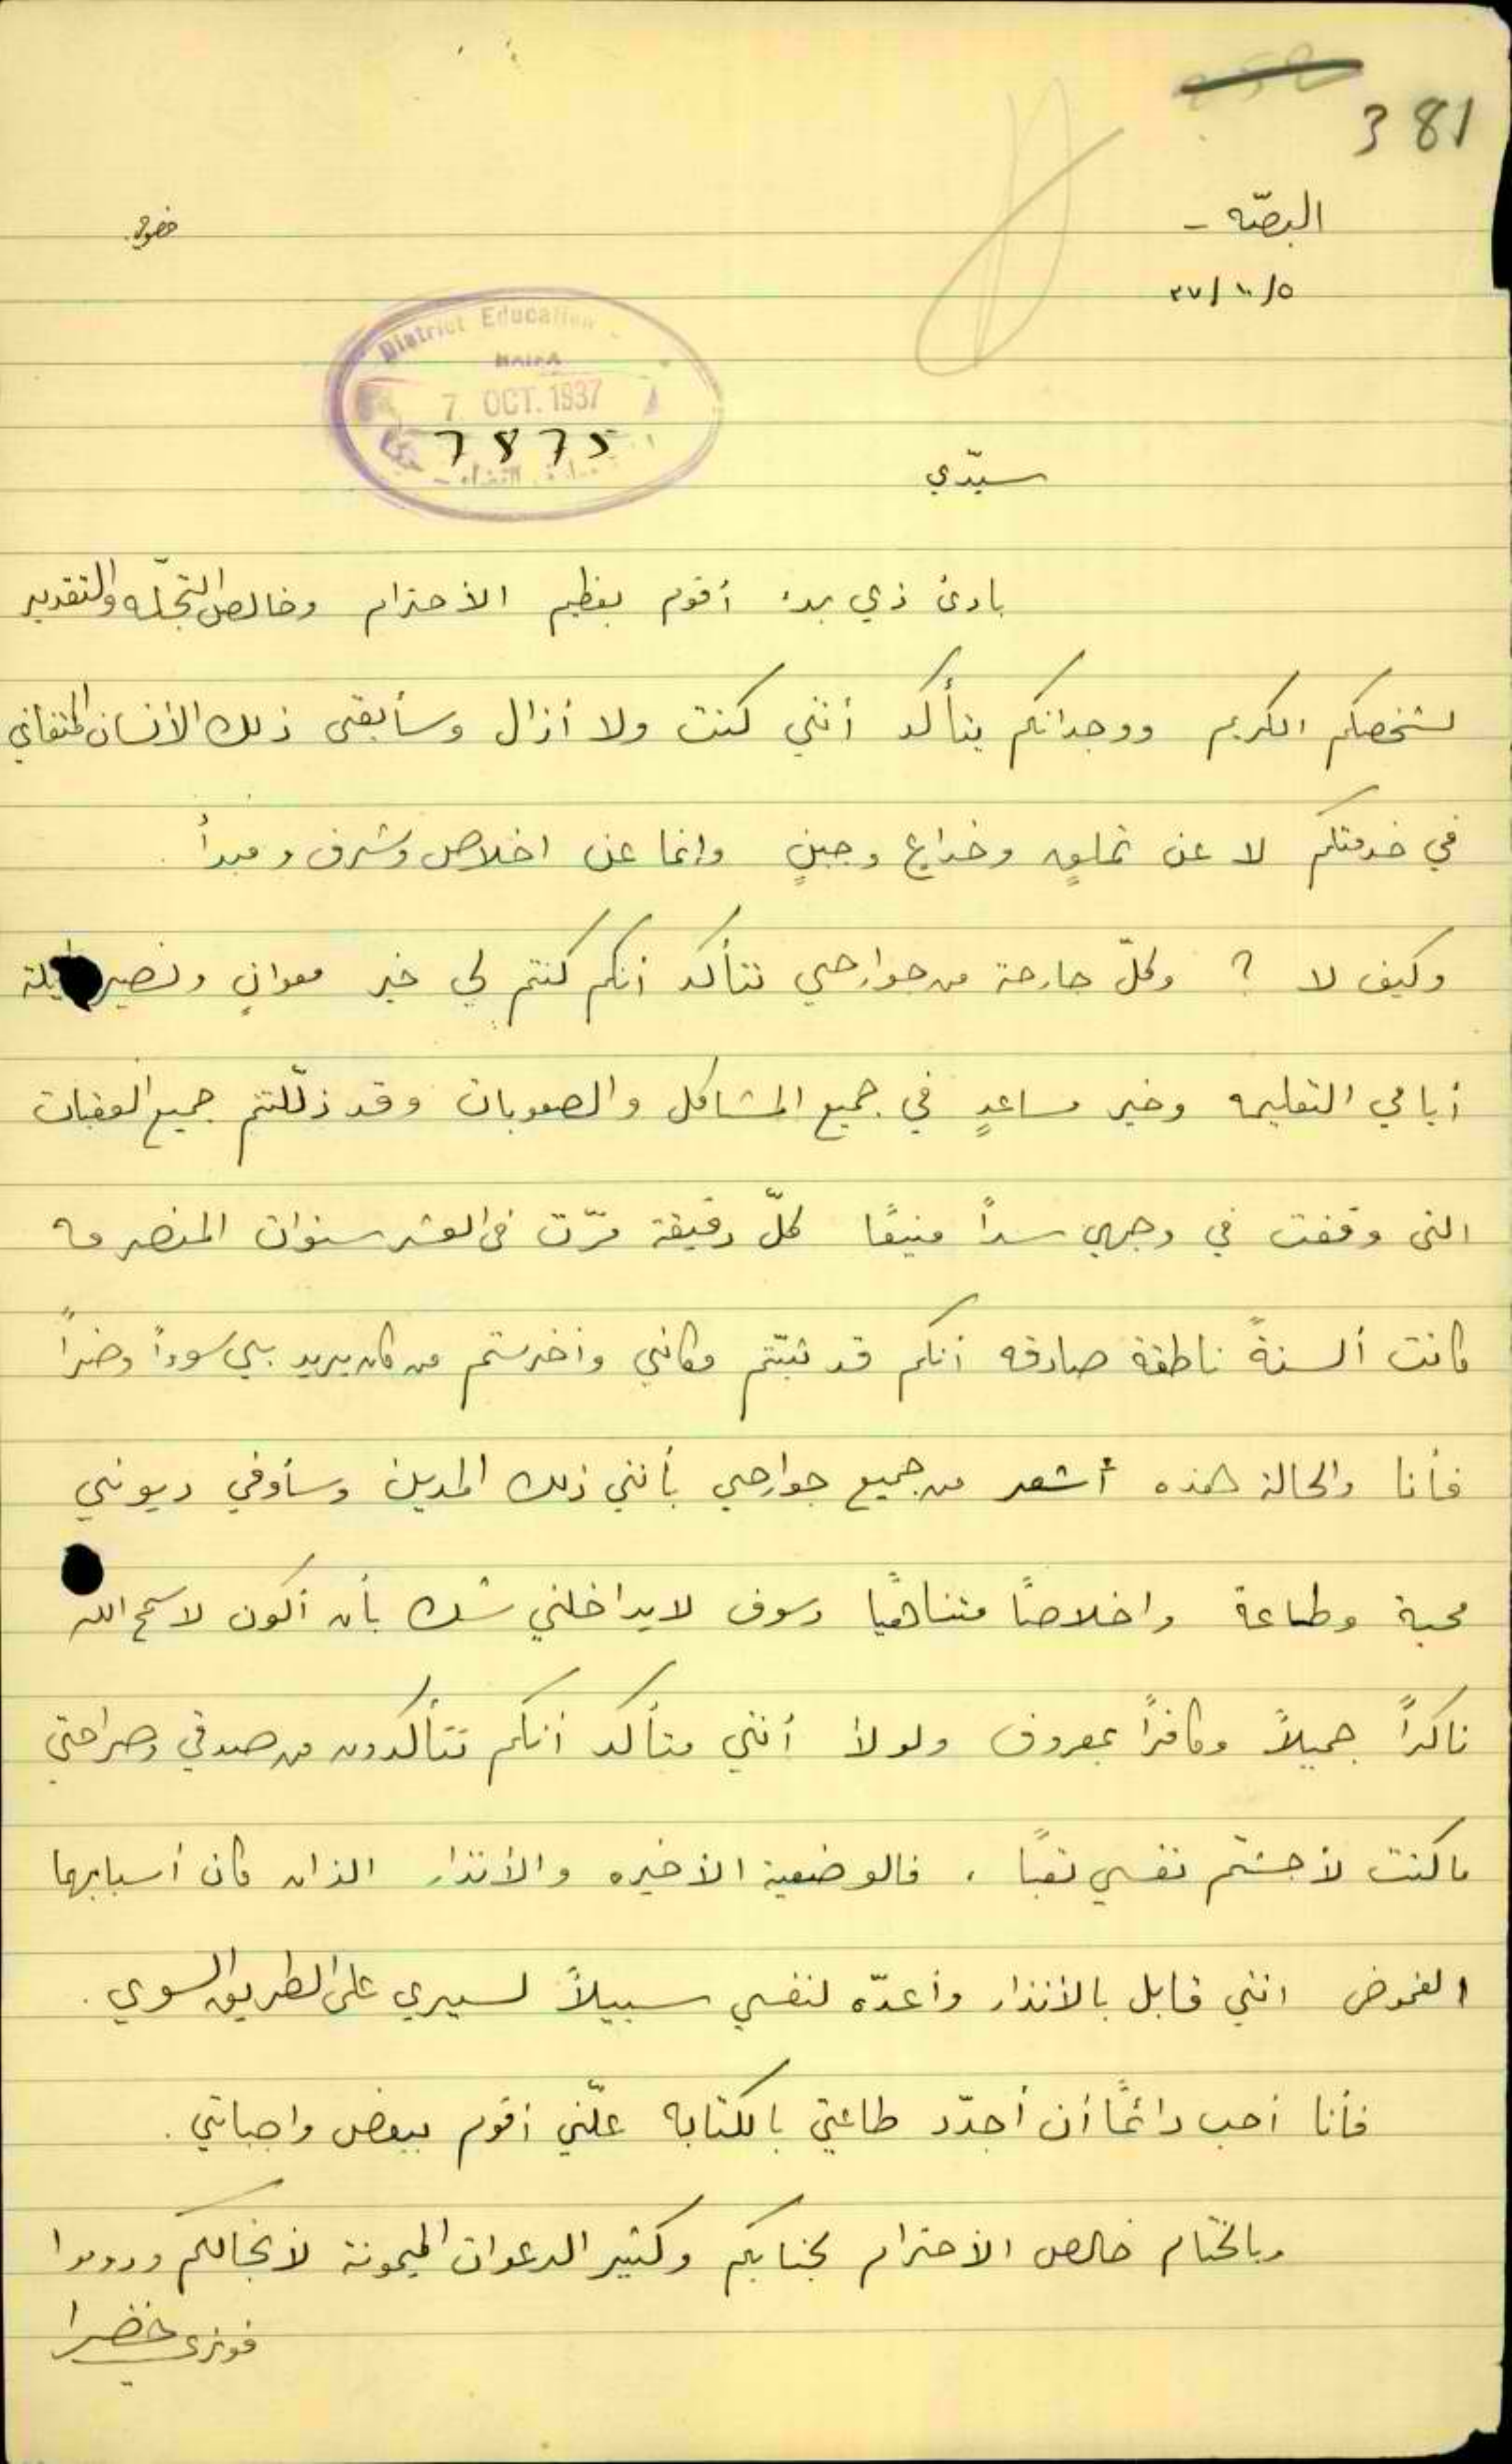 381
البصّه -
خصوصي
٥/١٠/٣٧
District Education
HAIFA
7 OCT. 1937
7875
سيّدي
بادئ ذي بدء أقوم بعظيم الأحترام وخالص التجلّه والتقدير
لشخصكم الكريم ووجدانكم يتأكد أنني كنت ولا أزال وسأبقى ذلك الأنسان المتفاني
في خدمتكم لا عن تملقٍ وخداعٍ وجبنٍ وانما عن اخلاص وشرف ومبدأ .
وكيف لا ؟ وكلّ جارحة من جوارحي تتأكد أنكم كنتم لي خير معوانٍ ونصير طيلة
أيامي التعليميه وخير مساعدٍ في جميع المشاكل والصعوبات وقد ذلّلتم جميع العقبات
التي وقفت في وجهي سداً منيعًا كلّ دقيقة مرّت في العشر سنوات المنصرمه
كانت ألسنةً ناطقة صادقه أنكم قد ثبّتم مكاني وأخرستم من كان يريد بي سوءاً وضراً
فأنا والحالة هذه أشعر من جميع جوارحي بأنني ذلك المدين وسأوفي ديوني
محبة وطاعة واخلاصًا متناهيًا وسوف لا يداخلني شك بأن أكون لا سمح الله
ناكراً جميلاً وكافراً بمعروف ولولا أنني متأكد أنكم تتأكدون من صدقي وصراحتي
ما كنت لأجشم نفسي تعبًا . فالوضعية الأخيره والأنذار الذان كان أسبابهما
الغموض انني قابل بالأنذار وأعدّه لنفسي سبيلاً لسيري على الطريق السوي .
فأنا أحب دائمًا أن أجدّد طاعتي بالكتابه علّني أقوم ببعض واجباتي .
وبالختام خالص الأحترام لجنابكم وكثير الدعوات الميمونة لأنجالكم ودوموا
فوزي خضرا